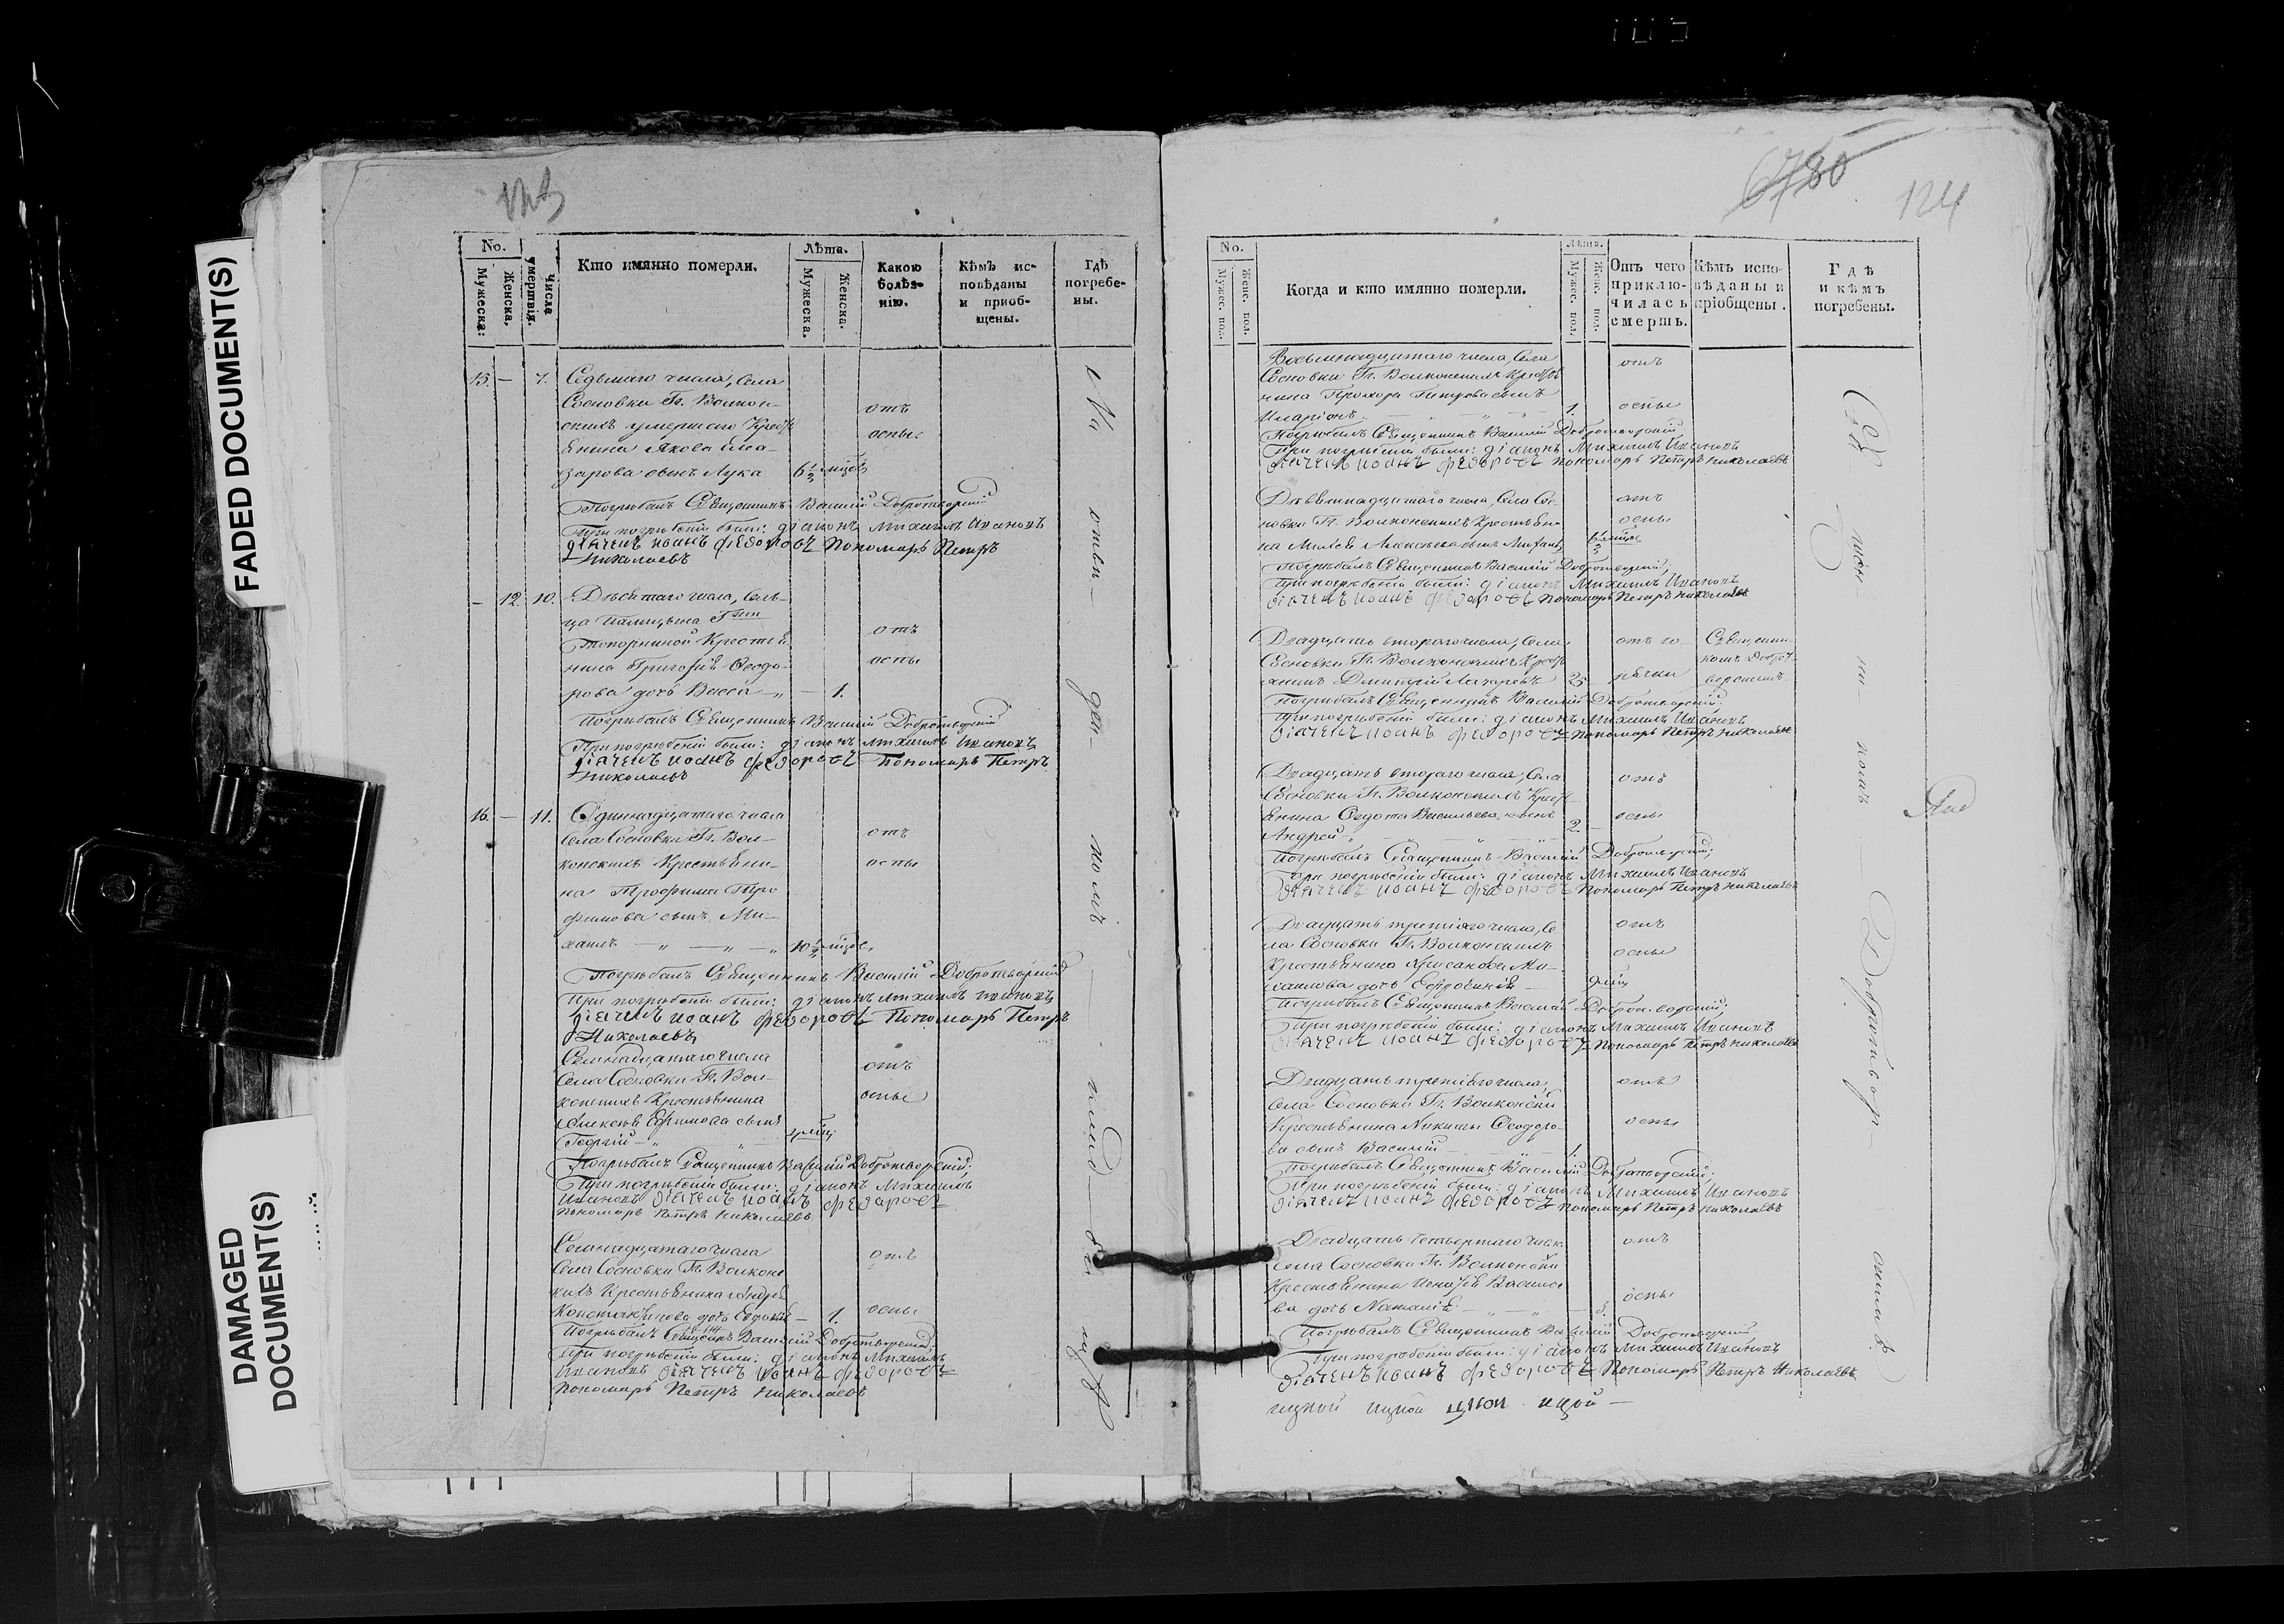 FADED DOCUMENT(S)
DAMAGED
DOCUMENT(S)
No.
Мужеска:
Женска.
Числа
умертвія.
Кто имянно померли.
Лѣта.
Мужеска.
Женска.
Какою
болѣз-
нію.
Кѣмъ ис-
повѣданы
и приоб-
щены.
Гдѣ
погребе-
ны.
15. — 7. Седьмаго числа, Села
Сосновки Гг. Волкон-
скихъ умершаго Крест
янина Якова
зарова сынъ Лука 6½ мцовъ
отъ
оспы
Погребалъ Священникъ Василій Добротворскій
При погребеніи были: діаконъ Михаилъ Ивановъ
дьячекъ Иоанъ Федоровъ Пономарь Петръ
Николаевъ
— 12. 10. Десятаго числа, Сель-
ца
Топорниной Крестья
нина Григорія Феодо-
рова дочь Васса — 1.
отъ
оспы
Погребалъ Священникъ Василій Добротворскій
При погребеніи были: діаконъ Михаилъ Ивановъ
дьячекъ Иоанъ Федоровъ Пономарь Петръ
Николаевъ
16. — 11. Одиннадцатаго числа
Села Сосновки Гг. Вол-
конскихъ Крестьяни-
на Трофима Тро
фимова сынъ Ми-
хаилъ — 10½ мцовъ
отъ
оспы
Погребалъ Священникъ Василій Добротворскій
При погребеніи были: діаконъ Михаилъ Ивановъ
дьячекъ Иоанъ Федоровъ Пономарь Петръ
Николаевъ
Семнадцатаго числа
Села Сосновки Гг. Вол-
конскихъ Крестьянина
Алексѣя Ефимова сынъ
Георгій —
отъ
оспы
Погребалъ Священникъ Василій Добротворскій;
При погребеніи были: діаконъ Михаилъ
Ивановъ дьячекъ Иоанъ Федоровъ
Пономарь Петръ Николаевъ
Семнадцатаго числа
Села Сосновки Гг. Волконс
кихъ Крестьянина Андрея
Константинова дочь Евдокія — 1.
отъ
оспы
Погребалъ Священникъ Василій Добротворскій
При погребеніи были: діаконъ Михаилъ
Ивановъ дьячекъ Иоанъ Федоровъ
Пономарь Петръ Николаевъ
6780
124
No.
Мужес. пол.
Женс. пол.
Когда и кто имянно померли.
Лѣта.
Мужес. пол.
Женс. пол.
Отъ чего
приклю-
чилась
смерть.
Кѣмъ испо-
вѣданы и
пріобщены.
Гдѣ
и кѣмъ
погребены.
Восьмнадцатаго числа, Села
Сосновки Гг. Волконскихъ Крестья
нина Прохора Петрова сынъ
Иларіонъ — 1.
отъ
оспы
Погребалъ Священникъ Василій Добротворскій
При погребеніи были: діаконъ Михаилъ Ивановъ
дьячекъ Иоанъ Федоровъ Пономарь Петръ Николаевъ
Девятнадцатаго числа, Села Сос
новки Гг. Волконскихъ Крестьяни
на
отъ
оспы
Погребалъ Священникъ Василій Добротворскій;
При погребеніи были: діаконъ Михаилъ Ивановъ
дьячекъ Иоанъ Федоровъ Пономарь Петръ Николаевъ
Двадцать втораго числа, Села
Сосновки Гг. Волконскихъ Крестья
янинъ Дмитрій Лазаревъ 25
отъ го-
рячки
Священни
комъ Доброт-
ворскимъ
Погребалъ Священникъ Василій Добротворскій.
При погребеніи были: діаконъ Михаилъ Ивановъ
дьячекъ Иоанъ Федоровъ Пономарь Петръ Николаевъ
Двадцать втораго числа, Села
Сосновки Гг. Волконскихъ Крест-
янина Федота Васильева сынъ
Андрей — 2.
отъ
оспы
Погребалъ Священникъ Василій Добротворскій;
При погребеніи были: діаконъ Михаилъ Ивановъ
дьячекъ Иоанъ Федоровъ Пономарь Петръ Николаевъ
Двадцать третіяго числа, Се
ла Сосновки Гг. Волконскихъ
Крестьянина Хрисанфа Ми-
хаилова дочь Ефросинія —
отъ
оспы
Погребалъ Священникъ Василій Добротворскій;
При погребеніи были: діаконъ Михаилъ Ивановъ
дьячекъ Иоанъ Федоровъ Пономарь Петръ Николаевъ
Двадцать третіяго числа,
Села Сосновки Гг. Волконски
Крестьянина Никиты Феодоро-
ва сынъ Василій — 1.
отъ
оспы
Погребалъ Священникъ Василій Добротворскій;
При погребеніи были: діаконъ Михаилъ Ивановъ
дьячекъ Иоанъ Федоровъ Пономарь Петръ Николаевъ
Двадцать четвертаго числа
Села Сосновки Гг. Волконски
Крестьянина Василье
ва дочь Наталія — 3.
отъ
оспы
Погребалъ Священникъ Василій Добротворскій
При погребеніи были: діаконъ Михаилъ Ивановъ
дьячекъ Иоанъ Федоровъ Пономарь Петръ Николаевъ
На отве- ден- номъ клад- би щѣ
Свя- щен- ни- комъ Добротвор- скимъ.